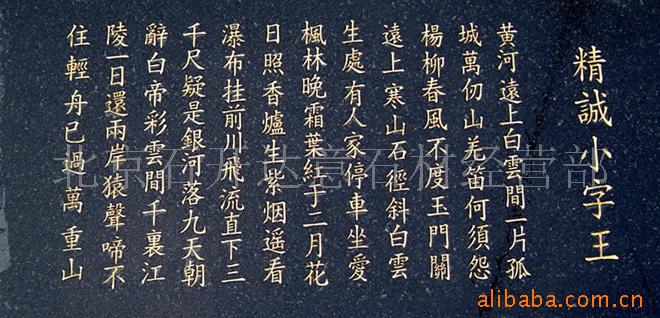 精誠小字王
黄河遠上白雲間一片孤
城萬仞山羌笛何須怨
楊柳春風不度玉門關
遠上寒山石徑斜白雲
生處有人家停車坐愛
楓林晚霜葉紅于二月花
日照香爐生紫烟遥看
瀑布挂前川飛流直下三
千尺疑是銀河落九天朝
辭白帝彩雲間千裏江
陵一日還兩岸猿聲啼不
住輕舟已過萬重山
北京石开达意石材经营部
alibaba.com.cn